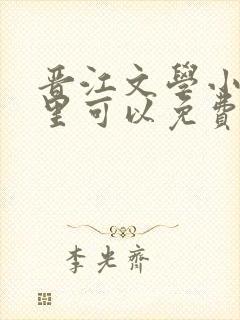 晋江文學小
里可以免費
李光齊